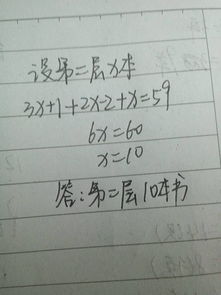 设第二层x本
3x+1+2x-2+x=59
6x=60
x=10
答:第二层10本书